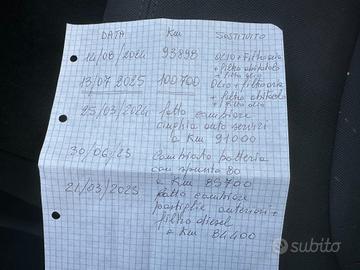 DATA KM SOSTITUITO
14/08/2024 93898 OLIO + Filtro aria
+ filtro abitacolo
+ filtro olio
13/07 2025 100700 OLIO + filtro aria
+ filtro abitacolo
+ filtro olio
25/03/2024 fatto cambiare
cinghia auto servizi
a KM 91000
30/06/23 Cambiato batteria
con spunta 80
a KM 85700
21/03/2023 fatto cambiare
pastiglie anteriori +
filtro diesel
a KM 84400
subito